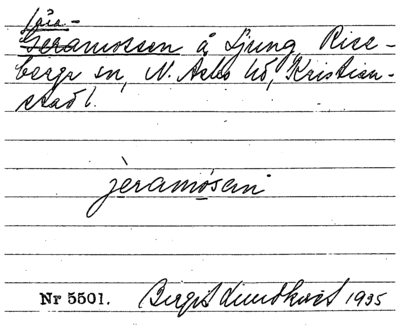 Gära-
Geramossen å Ljung, Risse-
berga sn, N. Åsbo hd, Kristian-
stad l.
jèramósen
Nr 5501. Birgit Lundkvist 1935